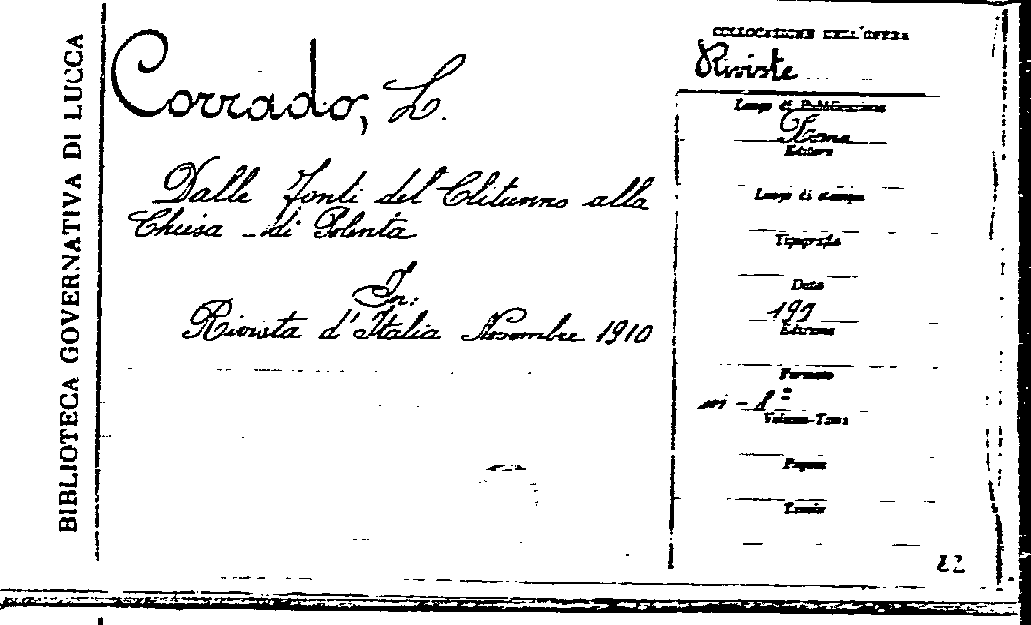 BIBLIOTECA GOVERNATIVA DI LUCCA
Corrado, L.
Dalle Fonti del Clitunno alla
Chiesa - di Polenta
In:
Rivista d'Italia Novembre 1910
COLLOCAZIONE DELL'OPERA
Riviste
Luogo di Pubblicazione
Roma
Editore
Luogo di stampa
Tipografia
Data
191
Edizione
Formato
in - 8º
Volume-Tomo
Pagine